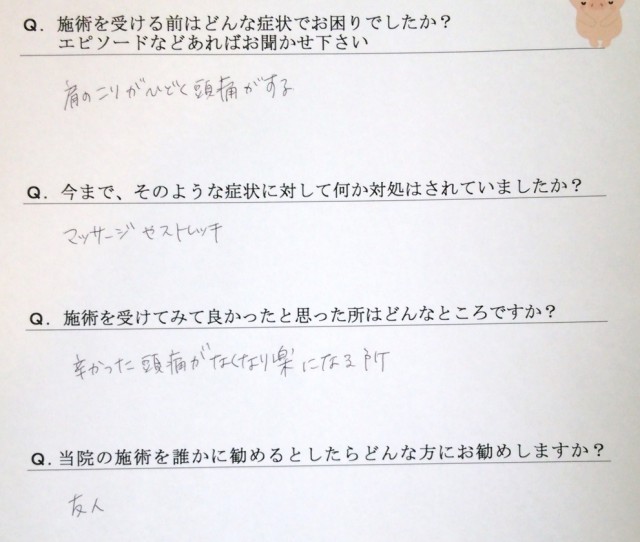 Q. 施術を受ける前はどんな症状でお困りでしたか?
エピソードなどあればお聞かせ下さい
肩のこりがひどく頭痛がする
Q. 今まで、そのような症状に対して何か対処はされていましたか?
マッサージやストレッチ
Q. 施術を受けてみて良かったと思った所はどんなところですか?
辛かった頭痛がなくなり楽になる所
Q. 当院の施術を誰かに勧めるとしたらどんな方にお勧めしますか?
友人